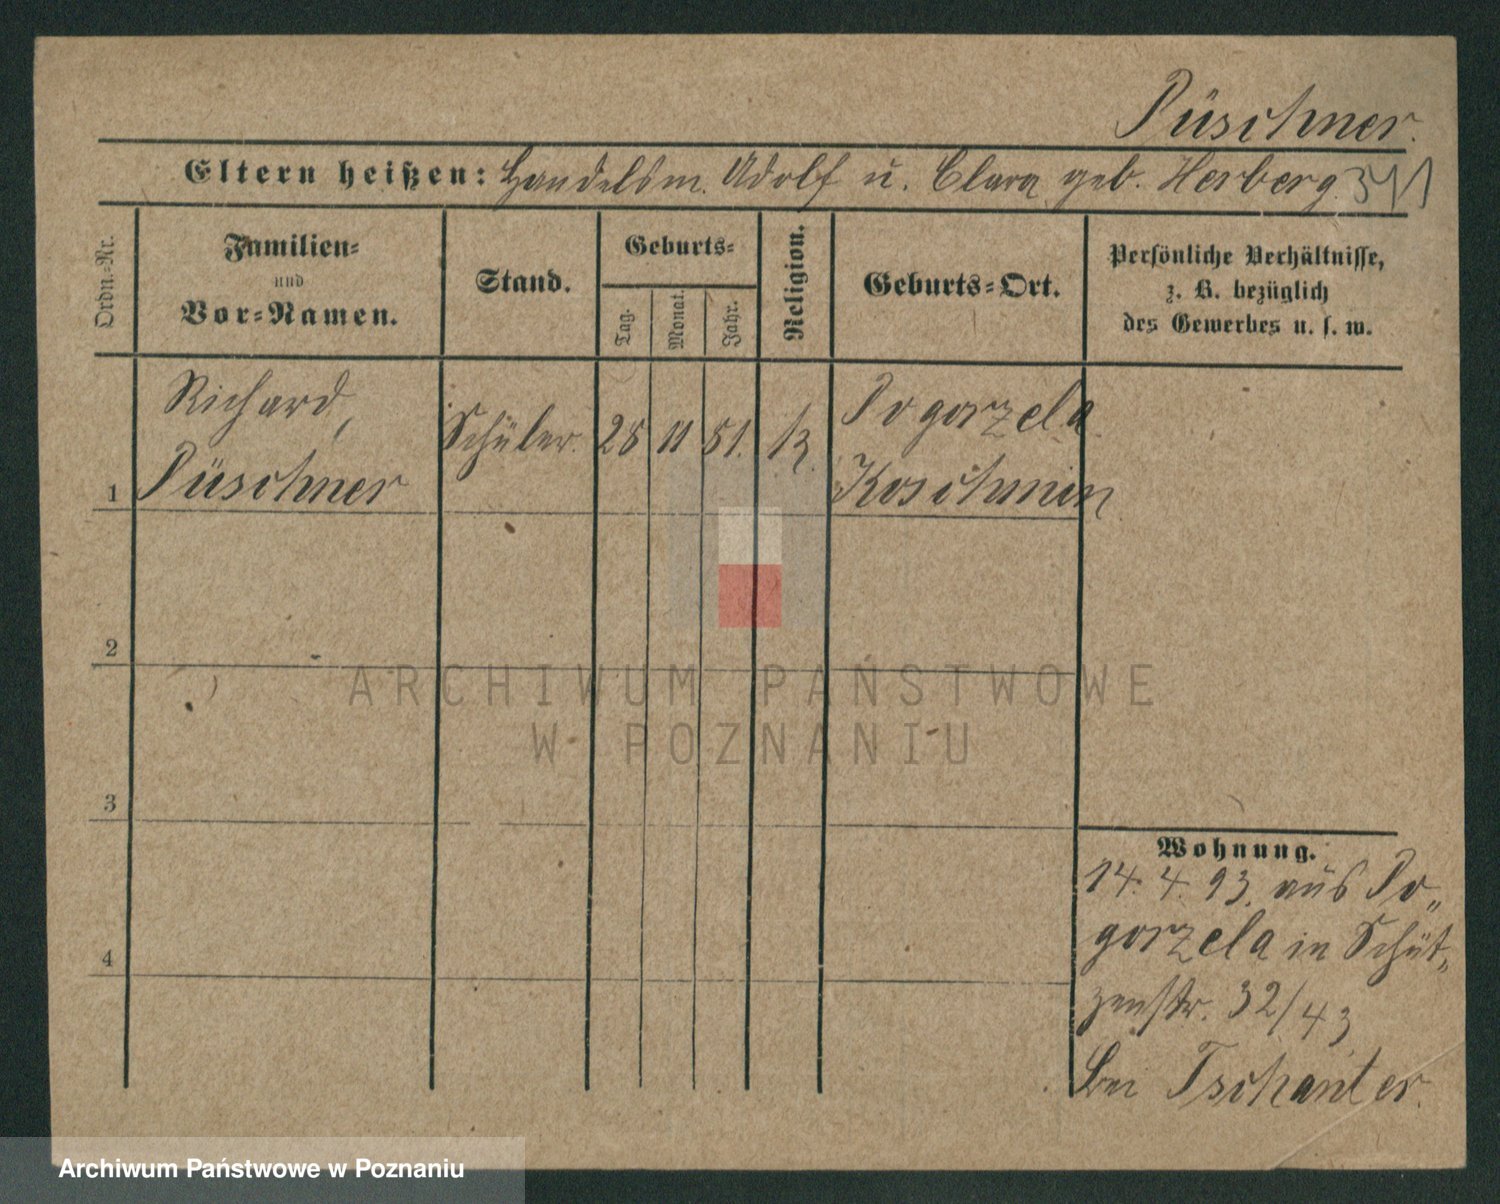 Püschner.
Eltern heißen: Handelsm. Adolf u. Clara geb. Herberg.
Ordn.-Nr.
Familien-
und
Vor-Namen.
Stand.
Geburts-
Tag.
Monat.
Jahr.
Religion.
Geburts-Ort.
Persönliche Verhältnisse,
z. B. bezüglich
des Gewerbes u. s. w.
Richard,
Püschner
Schüler.
28
11
81.
Pogorzela
Koschmin
1
2
3
4
ARCHIWUM PAŃSTWOWE
W POZNANIU
Wohnung.
14. 4. 93. aus Po„
gorzela in Schüt„
zenstr. 32/43
bei Tschanter.
Archiwum Państwowe w Poznaniu